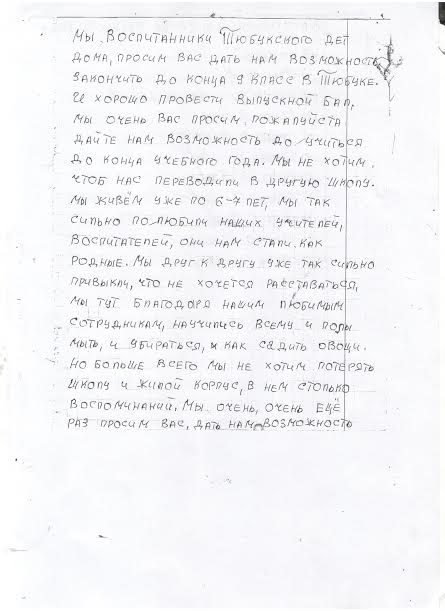 Мы воспитанники Тюбукского дет
дома, просим вас дать нам возможность
закончить до конца 9 класс в Тюбуке.
И хорошо провести выпускной бал,
мы очень вас просим, пожалуйста
дайте нам возможность до учиться
до конца учебного года. Мы не хотим.
чтоб нас переводили в другую школу.
Мы живём уже по 6-7 лет, мы так
сильно полюбили наших учителей,
воспитателей, они нам стали как
родные. Мы друг к другу уже так сильно
привыкли, что не хочется расставаться,
мы тут благодоря нашим любимым
сотрудникам, научились всему и полы
мыть, и убираться, и как садить овощи.
Но больше всего мы не хотим потерять
школу и жилой корпус, в нем столько
воспоминаний. Мы очень, очень ещё
раз просим вас, дать нам возможность